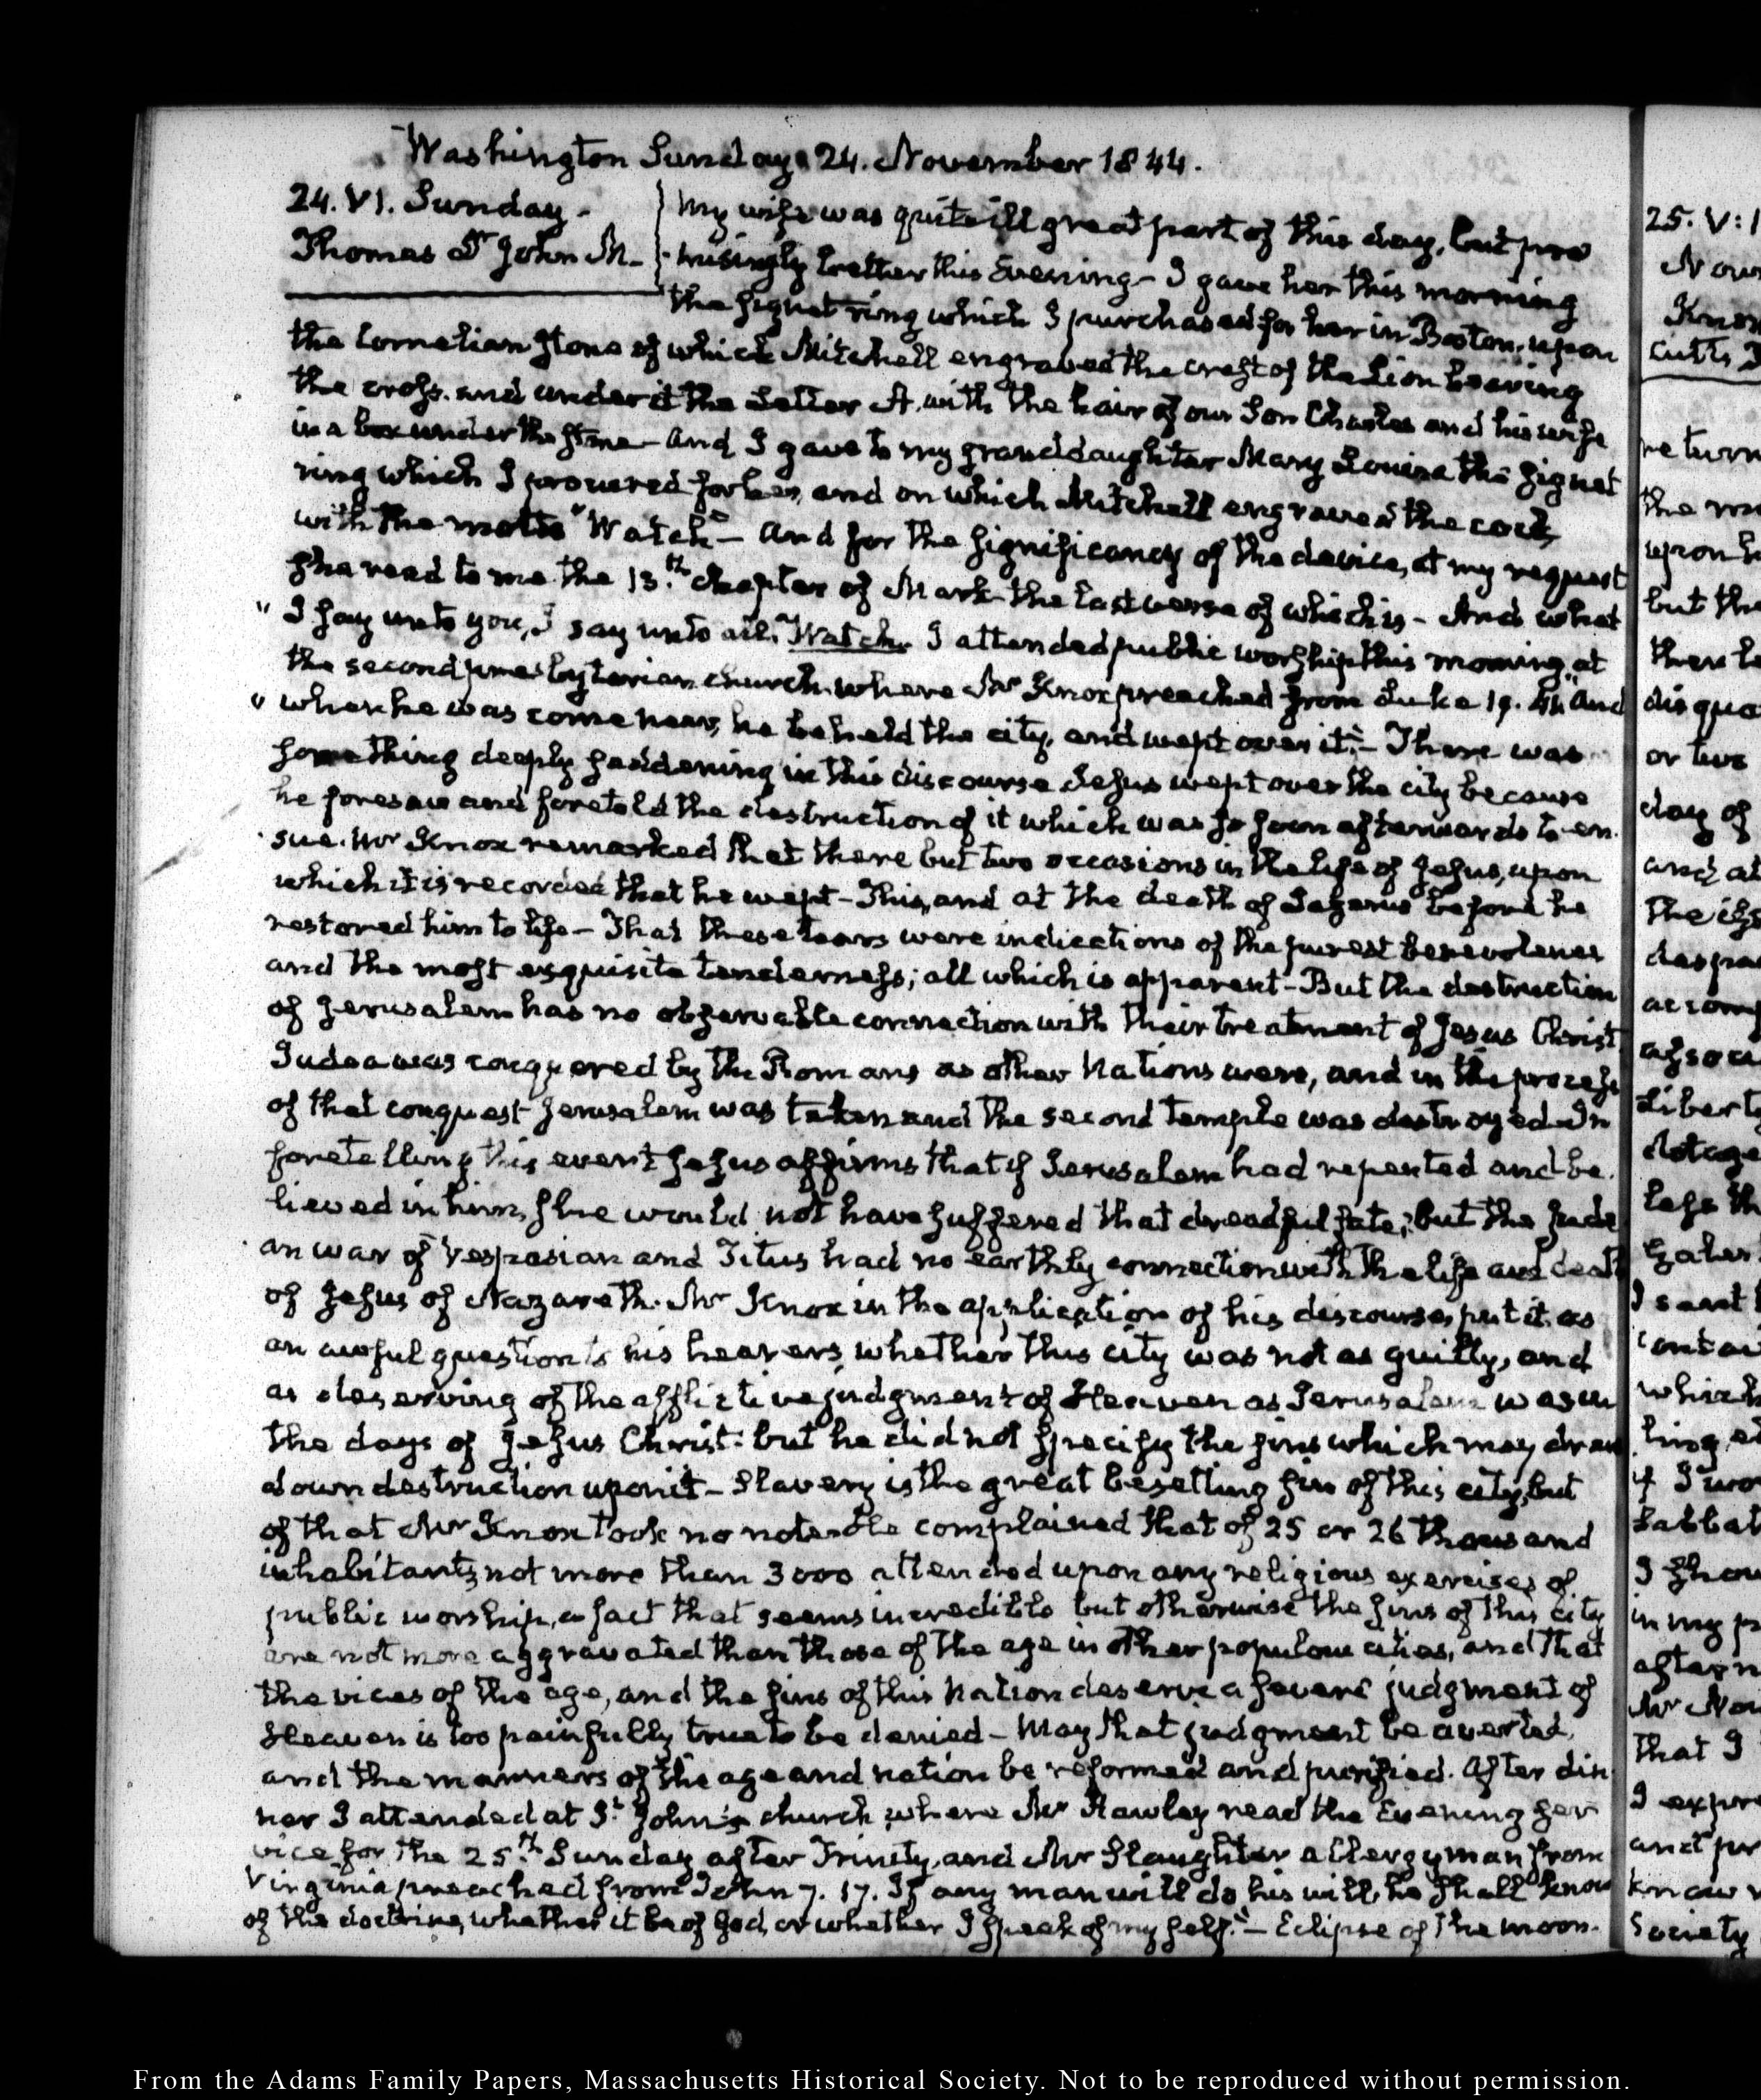 Washington Sunday 24. November 1844.
24. VI. Sunday.
Thomas Dr John M.
My wife was quite ill great part of this day, but pro
misingly better this Evening - I gave her this morning
the signet ring which I purchased for her in Boston, upon
the Cornelian stone of which Mitchell engraved the crest of the Lion bearing
the cross, and under it the Letter A. with the hair of our Son Charles and his wife
in a box under the stone - and I gave to my granddaughter Mary Louisa the signet
ring which I procured for her, and on which Mitchell engraved the cock,
with the motto "Watch" - and for the significancy of the device, at my request
she read to me the 13.th chapter of Mark the last verse of which is - And what
" I say unto you, I say unto all, "Watch. I attended public worship this morning at
the second presbyterian church, where Mr Knox preached from Luke 19. 41. "And
" when he was come near, he beheld the city, and wept over it." - There was
something deeply saddening in this discourse Jesus wept over the city because
he foresaw and foretold the destruction of it which was so soon afterwards to en
sue. Mr Knox remarked that there but two occasions in the life of Jesus, upon
which it is recorded that he wept - This, and at the death of Lazarus before he
restored him to life - That these tears were indications of the purest benevolence
and the most exquisite tenderness; all which is apparent - But the destruction
of Jerusalem has no observable connection with their treatment of Jesus Christ
Judea was conquered by the Romans as other Nations were, and in the process
of that conquest Jerusalem was taken and the second temple was destroyed. In
foretelling this event Jesus affirms that if Jerusalem had repented and be
lieved in him, she would not have suffered that dreadful fate; but the Jude
an war of Vespasian and Titus had no earthly connection with the life and death
of Jesus of Nazareth. Mr Knox in the application of his discourse, put it as
an awful question to his hearers, whether this city was not as guilty, and
as deserving of the afflictive judgment of Heaven as Jerusalem was in
the days of Jesus Christ: but he did not specify the sins which may draw
down destruction upon it - Slavery is the great besetting sin of this city, but
of that Mr Knox took no note. He complained that of 25 or 26 thousand
inhabitants, not more than 3000 attended upon any religious exercises of
public worship, a fact that seems incredible but otherwise the sins of this city
are not more aggravated than those of the age in other populous cities, and that
the vices of the age, and the sins of this Nation deserve a severe judgment of
Heaven is too painfully true to be denied - May that judgment be averted,
and the manners of the age and nation be reformed and purified. After din
ner I attended at St John's church, where Mr Hawley read the Evening ser
vice for the 25.th Sunday after Trinity, and Mr Slaughter a Clergyman from
Virginia preached from John 7. 17. If any man will do his will, he shall know
of the doctrine, whether it be of God, or whether I speak of my self." - Eclipse of the moon.
25. V:
Now
Knox
Cutts
return
the
upon
but the
then
disqua
or two
day of
and at
the
despa
accom
associ
Libert
dotage
less th
Gales
I sent
contai
which
ling
if I wo
Sabbat
I shou
in my p
aftern
Mr
that I
I expre
and pr
know
Society
From the Adams Family Papers, Massachusetts Historical Society. Not to be reproduced without permission.